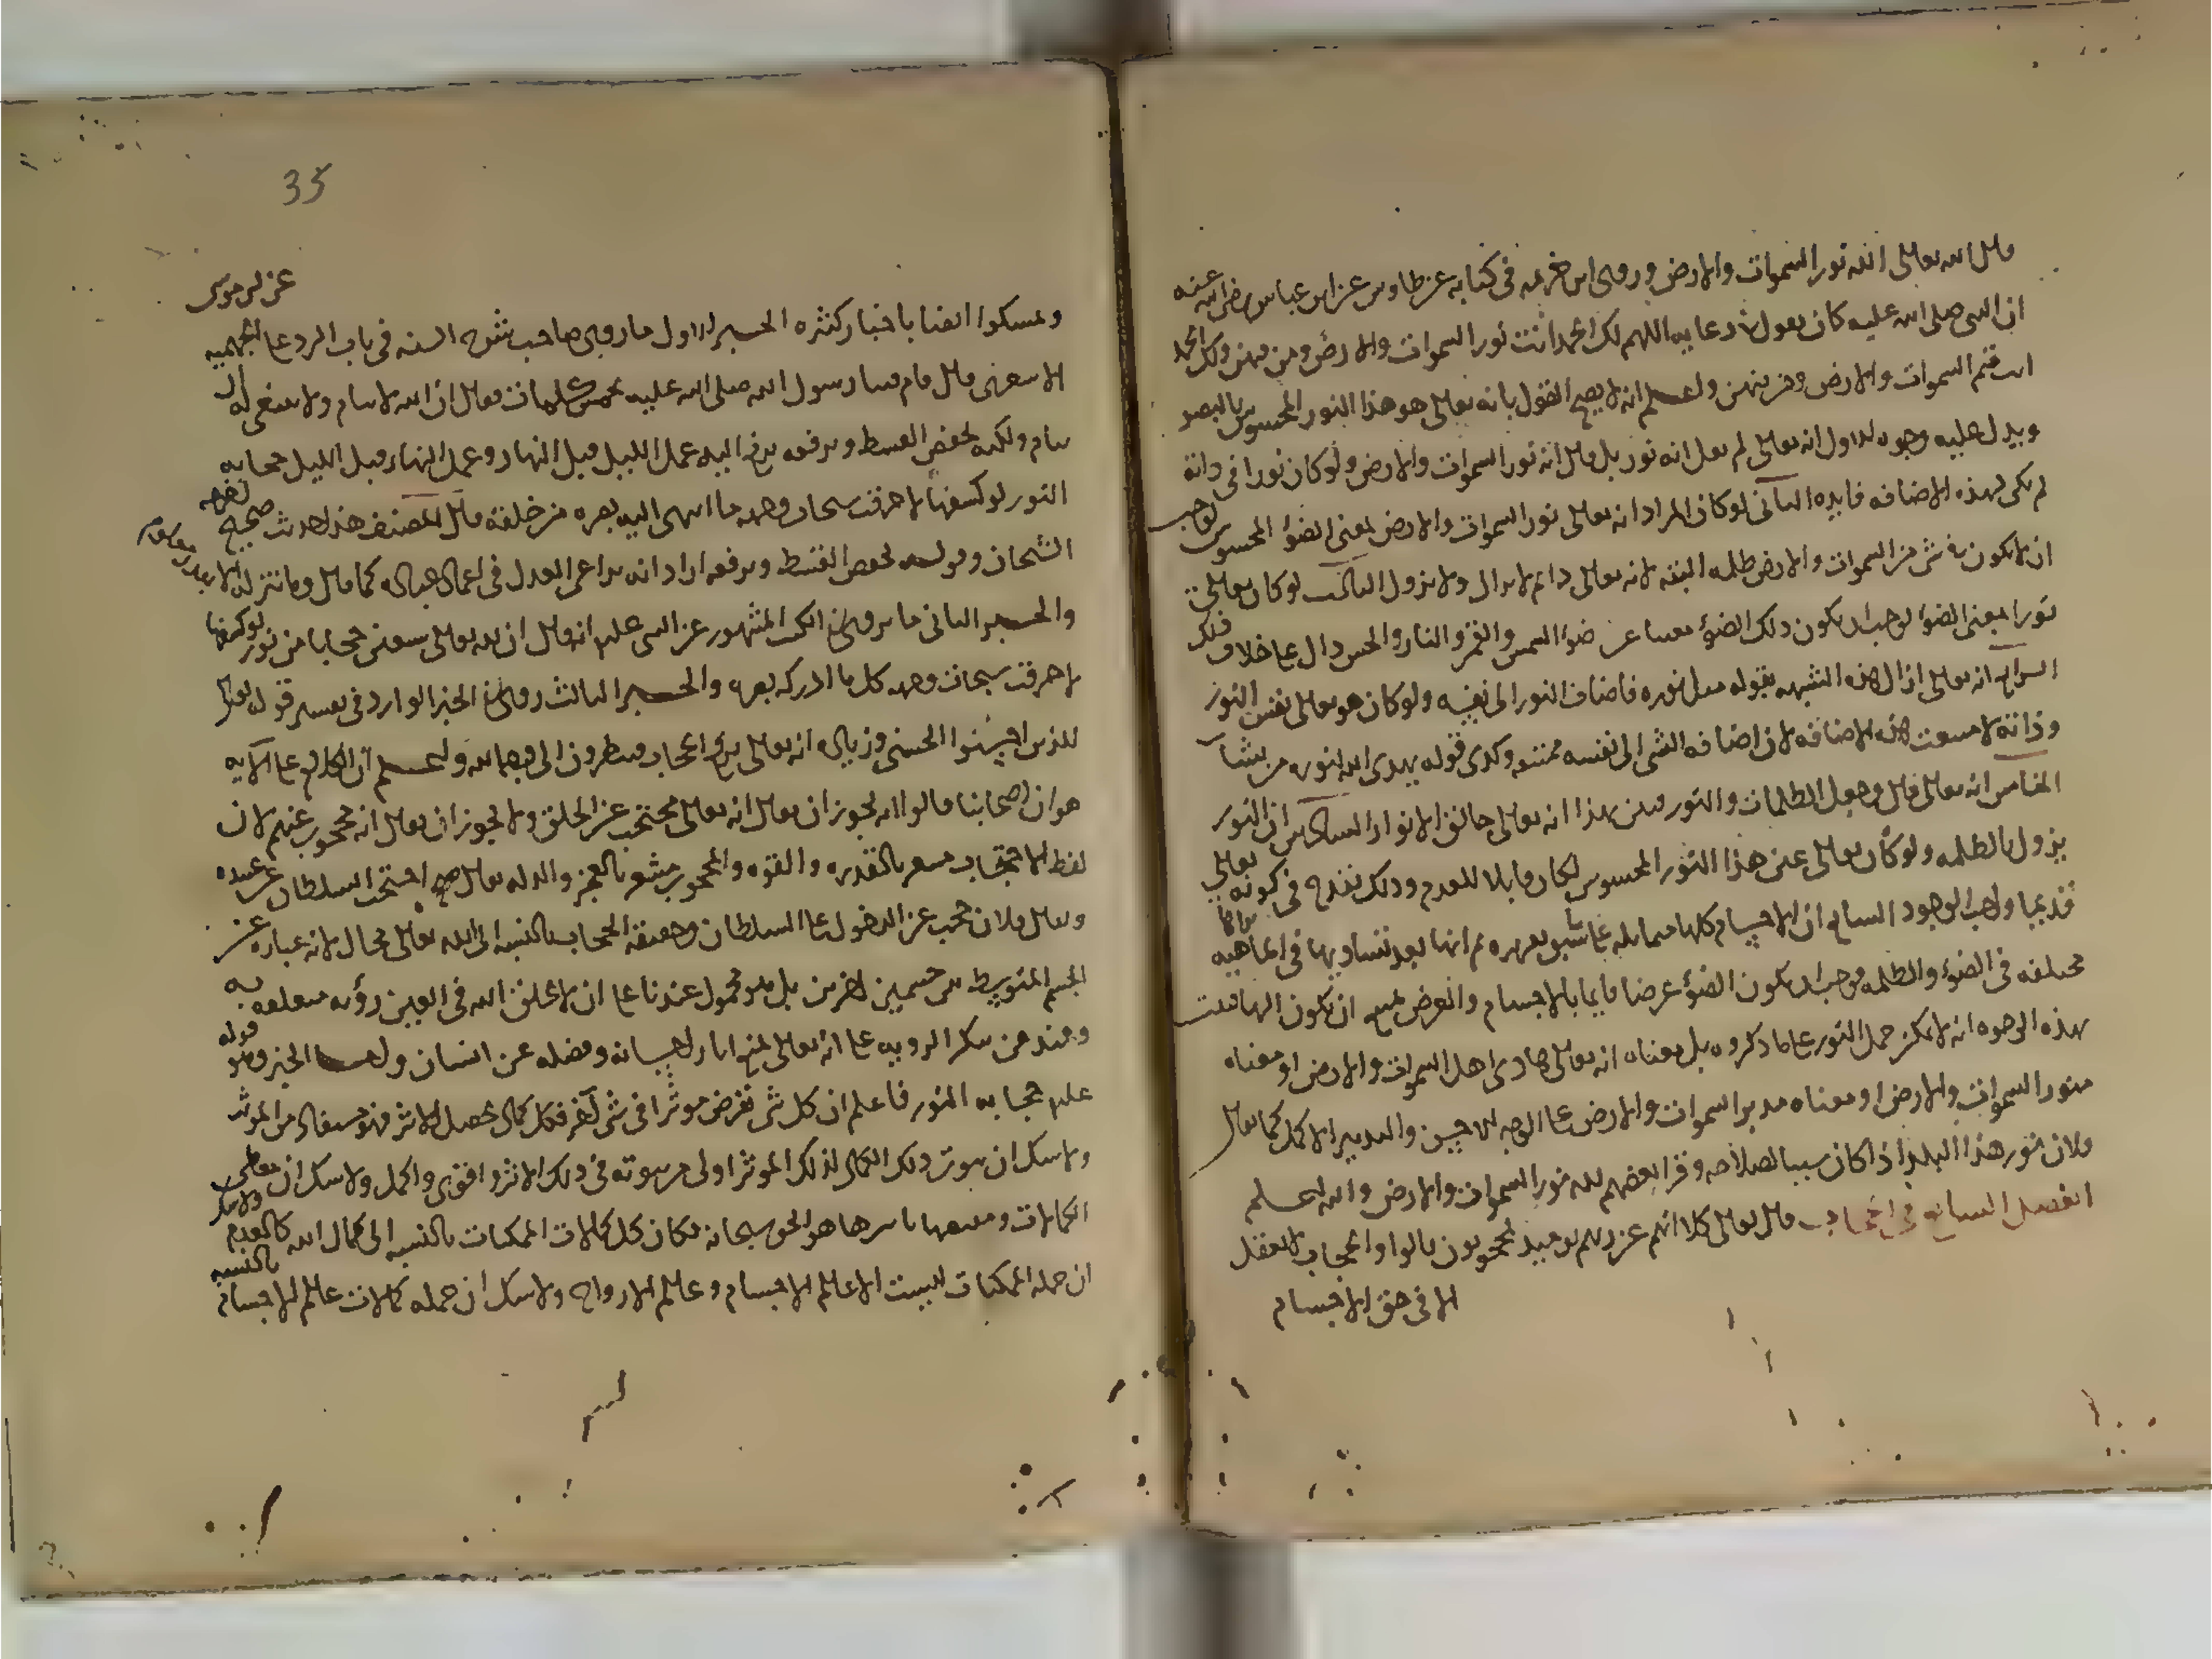 قال الله تعالى الله نور السموات والارض وروى ابن خزيمه في كتابه عن طاوس عن ابن عباس رضي الله عنه
ان النبي صلى الله عليه كان يقول في دعايه اللهم لك الحمد انت نور السموات والارض ومن فيهن ولك الحمد
انت قيم السموات والارض ومن فيهن واعلم انه لا يصح القول بانه تعالى هو هذا النور المحسوس بالبصر
ويدل عليه وجوه الاول انه تعالى لم يقل انه نور بل قال انه نور السموات والارض ولو كان نورا في ذاته
لم يكن لهذه الاضافه فايده الثاني لو كان المراد انه تعالى نور السموات والارض بمعنى الضوء المحسوس لوجب
ان لا يكون في شي من السموات والارض ظلمه البته لانه تعالى دايم لا يزال ولا يزول الثالث لو كان تعالى
نورا بمعنى الضوء لوجب ان يكون ذلك الضوء مغنيا عن ضوء الشمس والقمر والنار والحس دال على خلاف ذلك
الرابع انه تعالى ازال هذه الشبهه بقوله مثل نوره فاضاف النور الى نفسه ولو كان هو تعالى نفس النور
وذاته لامتنعت هذه الاضافه لان اضافه الشي الى نفسه ممتنعه وكذى قوله يهدي الله لنوره من يشآ
الخامس انه تعالى قال وجعل الظلمات والنور فبين بهذا انه تعالى خالق الانوار السادس ان النور
يزول بالظلمه ولو كان تعالى عين هذا النور المحسوس لكان قابلا للعدم وذلك يقدح في كونه تعالى
قديما واجب الوجود السابع ان الاجسام كلها متماثله على ما سبق تقريره ثم انها بعد تساويها في الماهيه تراها
مختلفه في الضوء والظلمه فوجب ان يكون الضوء عرضا قايما بالاجسام والعرض يمتنع ان يكون الها فثبت
بهذه الوجوه انه لا يمكن حمل النور على ما ذكروه بل معناه انه تعالى هادى اهل السموات والارض او معناه
منور السموات والارض او معناه مدبر السموات والارض على الوجه الاحسن والتدبير الاكمل كما يقال
فلان نور هذا البلد اذا كان سببا لصلاحه وقرا بعضهم لله نور السموات والارض والله اعلم
الفصل السابع في الحجاب قال تعالى كلا انهم عن ربهم يوميذ لمحجوبون قالوا والحجاب لا يعقل
الا في حق الاجسام
35
وتمسكوا ايضا باخبار كثيره الخبر الاول ما روى صاحب شرح السنه في باب الرد على الجهميه عن ابي موسى
الاشعري قال قام فينا رسول الله صلى الله عليه بخمس كلمات فقال ان الله لا ينام ولا ينبغي له ان
ينام ولكنه يخفض القسط ويرفعه يرفع اليه عمل الليل قبل النهار وعمل النهار قبل الليل حجابه
النور لو كشفها لاحرقت سبحات وجهه ما انتهى اليه بصره من خلقه قال المصنف هذا حديث صحيح اخرجه
الشيخان وقوله يخفض القسط ويرفعه اراد انه يراعى العدل في اعمال عباده كما قال وما ننزله الا بقدر معلوم
والخبر الثاني ما يروى في الكتب المشهوره عن النبي عليه انه قال ان لله تعالى سبعين حجابا من نور لو كشفها
لاحرقت سبحات وجهه كل ما ادركه بصره والخبر الثالث روى في الخبر الوارد في تفسير قوله تعالى
للذين احسنوا الحسنى وزياده انه تعالى يرفع الحجاب فينظرون الى وجهه الله واعلم ان الكلام على الايه
هو ان اصحابنا قالوا انه يجوز ان يقال انه تعالى محتجب عن الخلق ولا يجوز ان يقال انه محجوب عنهم لان
لفظ الاحتجاب مشعر بالقدره والقوه والمحجوب مشعر بالعجز والذله يقال احتجب السلطان عن عبيده
ويقال فلان حجب عن الدخول على السلطان وحقيقه الحجاب بالنسبه الى الله تعالى محال لانه عباره عن
الجسم المتوسط بين جسمين اخرين بل هو محمول عندنا على ان لا يخلق الله في العين رؤيه متعلقه به
وعند من ينكر الرويه على انه تعالى يمنع اثار احسانه وفضله عن انسان واما الخبر وهو قوله
عليه حجابه النور فاعلم ان كل شي يفرض موثرا في شي آخر فكل كمال يحصل للاثر فهو مستفاد من الموثر
ولا شك ان ثبوت ذلك الكمال لذلك الموثر اولى من ثبوته في ذلك الاثر واقوى واكمل ولا شك ان معطى
الكمالات ومنبعها باسرها هو الحق سبحانه فكان كل كمالات الممكنات بالنسبه الى كمال الله كالعدم ولا شك
ان جمله الممكنات ليست الا عالم الاجسام وعالم الارواح ولا شك ان جمله كمالات عالم الاجسام بالنسبه